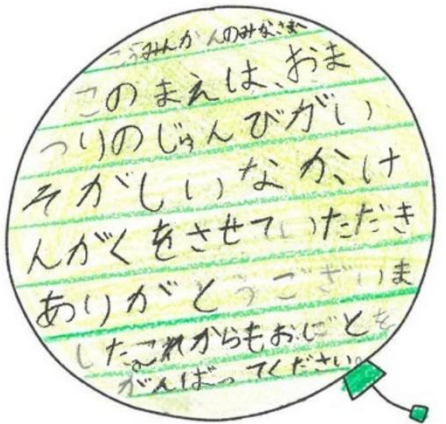 こうみんかんのみなさまへ
このまえは、おま
つりのじゅんびがい
そがしいなか、け
んがくをさせていただき
ありがとうございま
した。これからもおしごとを
がんばってください。